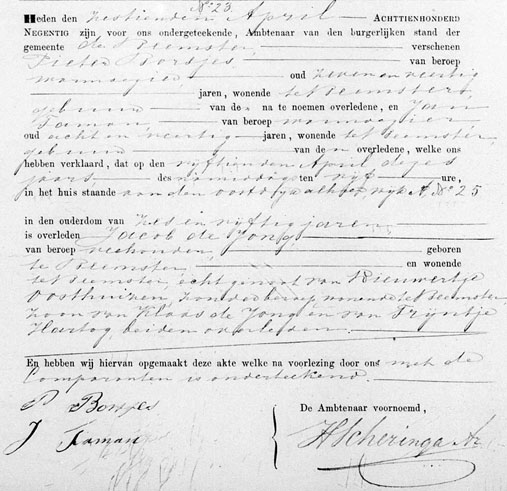 No 23
Heden den zestienden April ACHTTIENHONDERD
NEGENTIG zijn voor ons ondergeteekende, Ambtenaar van den burgerlijken stand der
gemeente de Beemster, verschenen
Pieter Borstjes van beroep
oud zeven en veertig
jaren, wonende te Beemster,
gebuur van de na te noemen overledene, en Jan
Taman van beroep
oud acht en veertig jaren, wonende te Beemster,
gebuur van de overledene, welke ons
hebben verklaard, dat op den vijftienden April dezes
jaars des namiddags ten vijf ure,
in het huis staande aan den Oostdijk No 25
in den ouderdom van zes en vijftig jaren,
is overleden Jacob de Jong,
van beroep veehouder, geboren
te Beemster, en wonende
te Beemster, echtgenoot van Nieuwertje
Oosthuizen, zonder beroep, wonende te Beemster,
zoon van Klaas de Jong en van Trijntje
Hartog, beiden overleden.
En hebben wij hiervan opgemaakt deze akte welke na voorlezing door ons met de
Comparanten is onderteekend.
P Borstjes
De Ambtenaar voornoemd,
J Taman
HScheringa Az